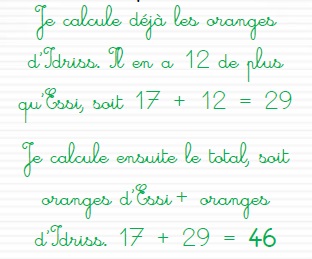 Je calcule déjà les oranges
d'Idriss. Il en a 12 de plus
qu'Essi, soit 17 + 12 = 29
Je calcule ensuite le total, soit
oranges d'Essi + oranges
d'Idriss. 17 + 29 = 46